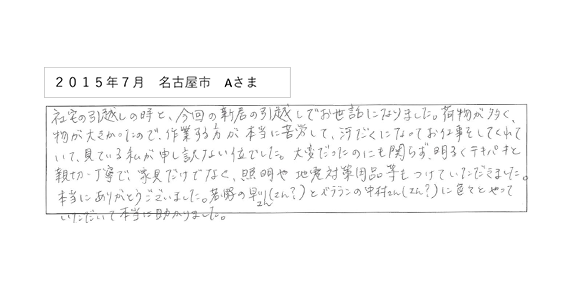 2015年7月　名古屋市　Aさま
社宅の引越しの時と、今回の新居の引越しでお世話になりました。荷物が多く、
物が大きかったので、作業する方が本当に苦労して、汗だくになってお仕事をしてくれて
いて、見ている私が申し訳ない位でした。大変だったのにも関らず、明るくテキパキと
親切・丁寧で、家具だけでなく、照明や地震対策用品等もつけていただきました。
本当にありがとうございました。若野の早川さん(さん?)とベテランの中村さん(さん?)に色々とやって
いただいて本当に助かりました。